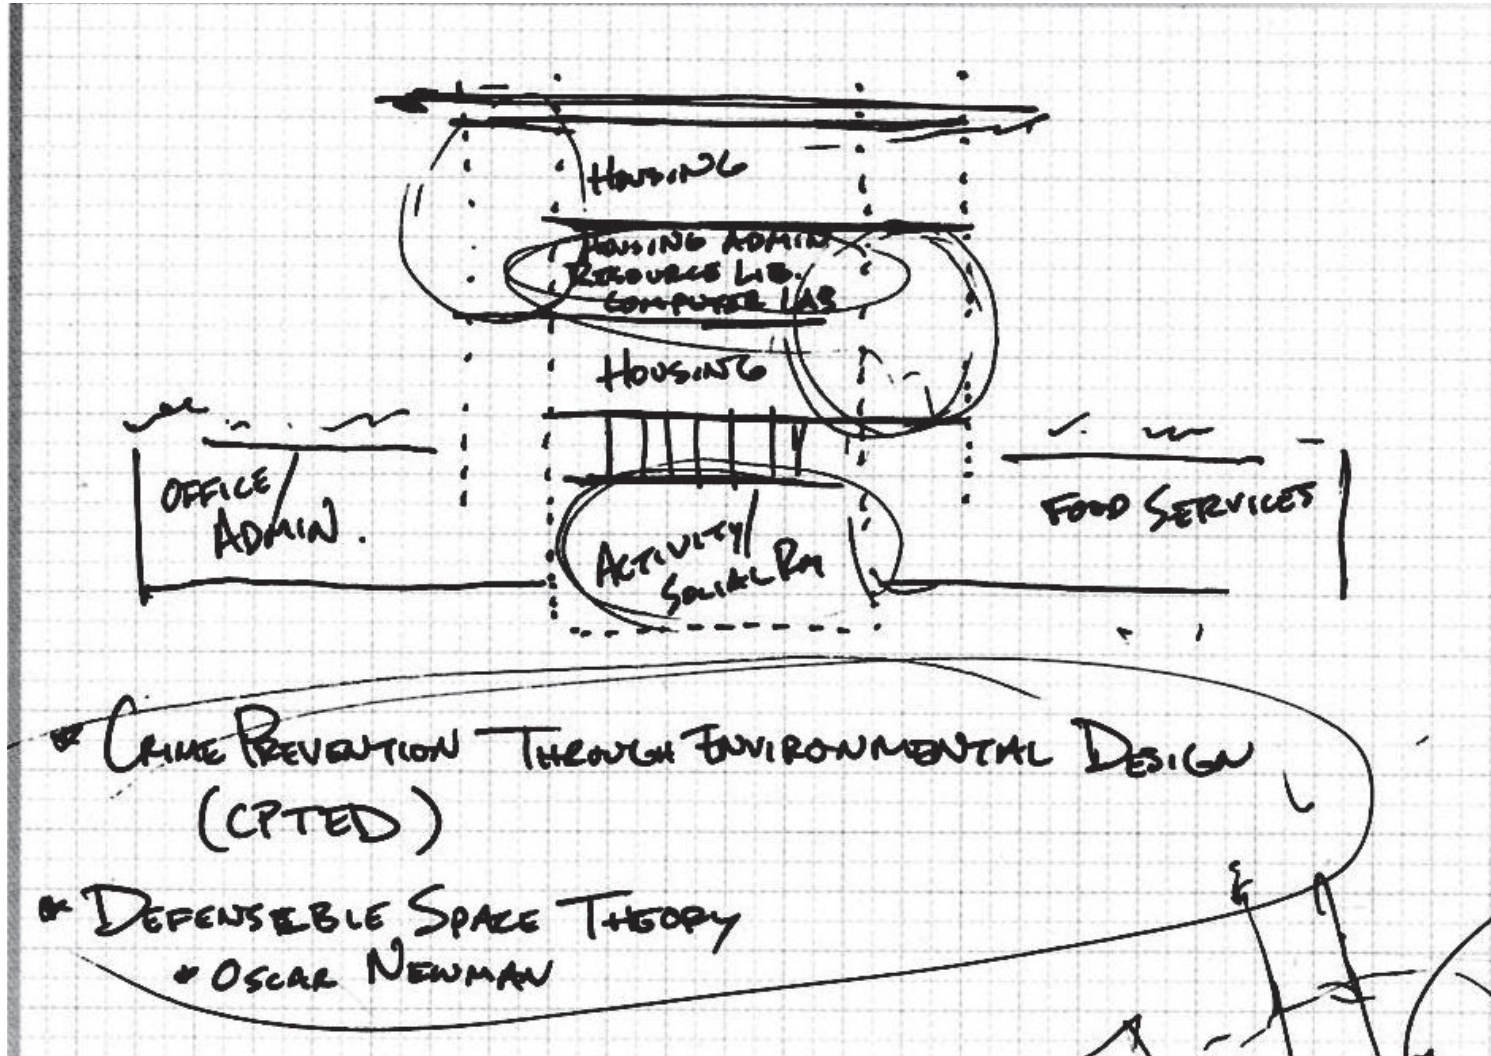 HOUSING
HOUSING ADMIN
RESOURCE LIB.
COMPUTER LAB
HOUSING
OFFICE/
ADMIN.
ACTIVITY/
SOCIAL RM
FOOD SERVICES
* CRIME PREVENTION THROUGH ENVIRONMENTAL DESIGN
(CPTED)
* DEFENSIBLE SPACE THEORY
* OSCAR NEWMAN